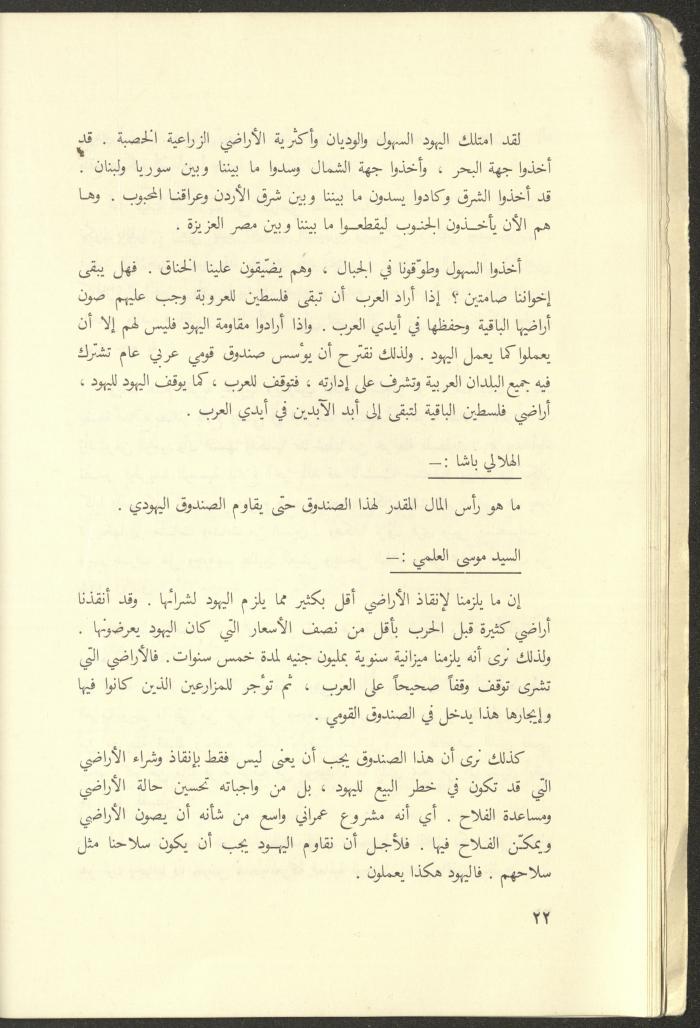 لقد امتلك اليهود السهول والوديان وأكثرية الأراضي الزراعية الخصبة . قد
أخذوا جهة البحر ، وأخذوا جهة الشمال وسدوا ما بيننا وبين سوريا ولبنان .
قد أخذوا الشرق وكادوا يسدون ما بيننا وبين شرق الأردن وعراقنا المحبوب . وها
هم الأن يأخذون الجنوب ليقطعوا ما بيننا وبين مصر العزيزة .
أخذوا السهول وطوّقونا في الجبال ، وهم يضيّقون علينا الخناق . فهل يبقى
إخواننا صامتين ؟ إذا أراد العرب أن تبقى فلسطين للعروبة وجب عليهم صون
أراضيها الباقية وحفظها في أيدي العرب . واذا أرادوا مقاومة اليهود فليس لهم إلا أن
يعملوا كما يعمل اليهود . ولذلك نقترح أن يؤسس صندوق قومي عربي عام تشترك
فيه جميع البلدان العربية وتشرف على إدارته ، فتوقف للعرب ، كما يوقف اليهود لليهود ،
أراضي فلسطين الباقية لتبقى إلى أبد الآبدين في أيدي العرب .
الهلالي باشا :—
ما هو رأس المال المقدر لهذا الصندوق حتى يقاوم الصندوق اليهودي .
السيد موسى العلمي :—
إن ما يلزمنا لإنقاذ الأراضي أقل بكثير مما يلزم اليهود لشرائها . وقد أنقذنا
أراضي كثيرة قبل الحرب بأقل من نصف الأسعار التي كان اليهود يعرضونها .
ولذلك نرى أنه يلزمنا ميزانية سنوية بمليون جنيه لمدة خمس سنوات . فالأراضي التي
تشرى توقف وقفاً صحيحاً على العرب ، ثم تؤجر للمزارعين الذين كانوا فيها
وإيجارها هذا يدخل في الصندوق القومي .
كذلك نرى أن هذا الصندوق يجب أن يعنى ليس فقط بإنقاذ وشراء الأراضي
التي قد تكون في خطر البيع لليهود ، بل من واجباته تحسين حالة الأراضي
ومساعدة الفلاح . أي أنه مشروع عمراني واسع من شأنه أن يصون الأراضي
ويمكّن الفلاح فيها . فلأجل أن نقاوم اليهود يجب أن يكون سلاحنا مثل
سلاحهم . فاليهود هكذا يعملون .
٢٢